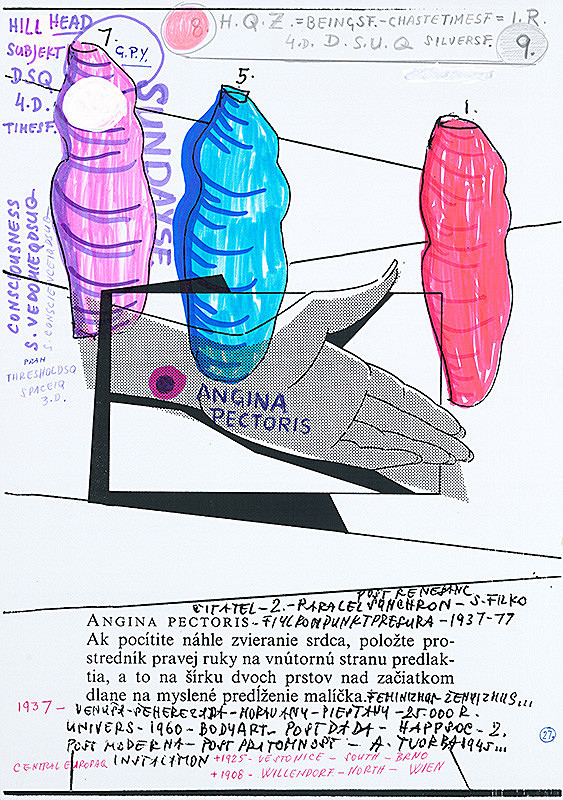 8. H.Q.Z. = BEINGSF.-CHASTETIMESF = I.R.
4.D. D.S.U.Q SILVERSF.
9.
HILL HEAD
SUBJEKT
DSQ
4.D.
TIMESF.
7.
G.P.Y.
SUNDAYSF
5.
1.
CONSCIOUSNESS
THRESHOLDSQ
SPACEIQ
3.D.
ANGINA
PECTORIS
POST RENESANC
CITATEL-2.-PARALELSYNCHRON-S.FILKO
ANGINA PECTORIS-FIYLPOMPUNKTPRESURA-1937-77
Ak pocítite náhle zvieranie srdca, položte pro-
stredník pravej ruky na vnútornú stranu predlak-
tia, a to na šírku dvoch prstov nad začiatkom
dlane na myslené predĺženie malíčka.
1937-VENUŠA-ŠEHEREZADA-MORAVANY-PIEŠŤANY-25.000 R.
UNIVERS-1960-BODYART-POST DADA-HAPPSOC-2.
POST MODERNA-POST PRITOMNOSŤ-A. TVORBA 1945...
27.
CENTRAL EUROPAQ INSTALATION +1925-VESTONICE-SOUTH-BRNO
+1908-WILLENDORF-NORTH-WIEN